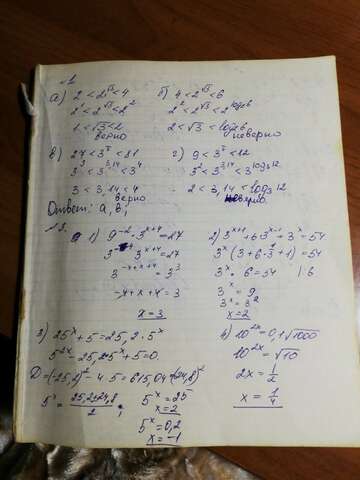 №1
а) 2 < 2^√3 < 4
2¹ < 2^√3 < 2²
1 < √3 < 2
верно
б) 4 < 2^√3 < 6
2² < 2^√3 < 2^log₂6
2 < √3 < log₂6
неверно
в) 27 < 3^π < 81
3³ < 3^3,14 < 3⁴
3 < 3,14 < 4
верно
г) 9 < 3^π < 12
3² < 3^3,14 < 3^log₃12
2 < 3,14 < log₃12
неверно
Ответ: а, в;
1) 9^-2 · 3^x+4 = 27
3^-4 · 3^x+4 = 27
3^-4+x+4 = 3³
-4+x+4 = 3
x = 3
2) 3^x+1 + 6·3^x-1 + 3^x = 54
3^x (3 + 6·3^-1 + 1) = 54
3^x · 6 = 54 | :6
3^x = 9
3^x = 3²
x = 2
3) 25^x + 5 = 25,2 · 5^x
5^2x - 25,2·5^x + 5 = 0
D = (-25,2)² - 4·5 = 615,04 = (24,8)²
5^x = 25,2±24,8 / 2 ;
5^x = 25
x = 2
5^x = 0,2
x = -1
4) 10^2x = 0,1√1000
10^2x = √10
2x = 1/2
x = 1/4